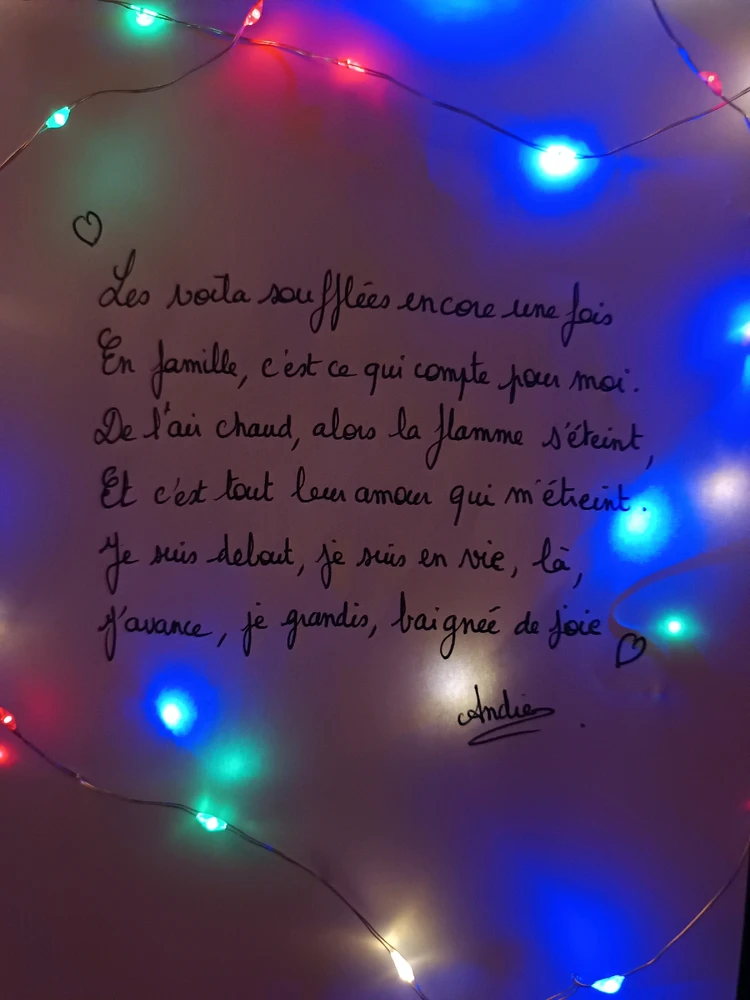 Les voila soufflées encore une fois
En famille, c'est ce qui compte pour moi.
De l'air chaud, alors la flamme s'éteint,
Et c'est tout leur amour qui m'étreint.
Je suis debout, je suis en vie, là,
J'avance, je grandis, baignée de joie
Andie